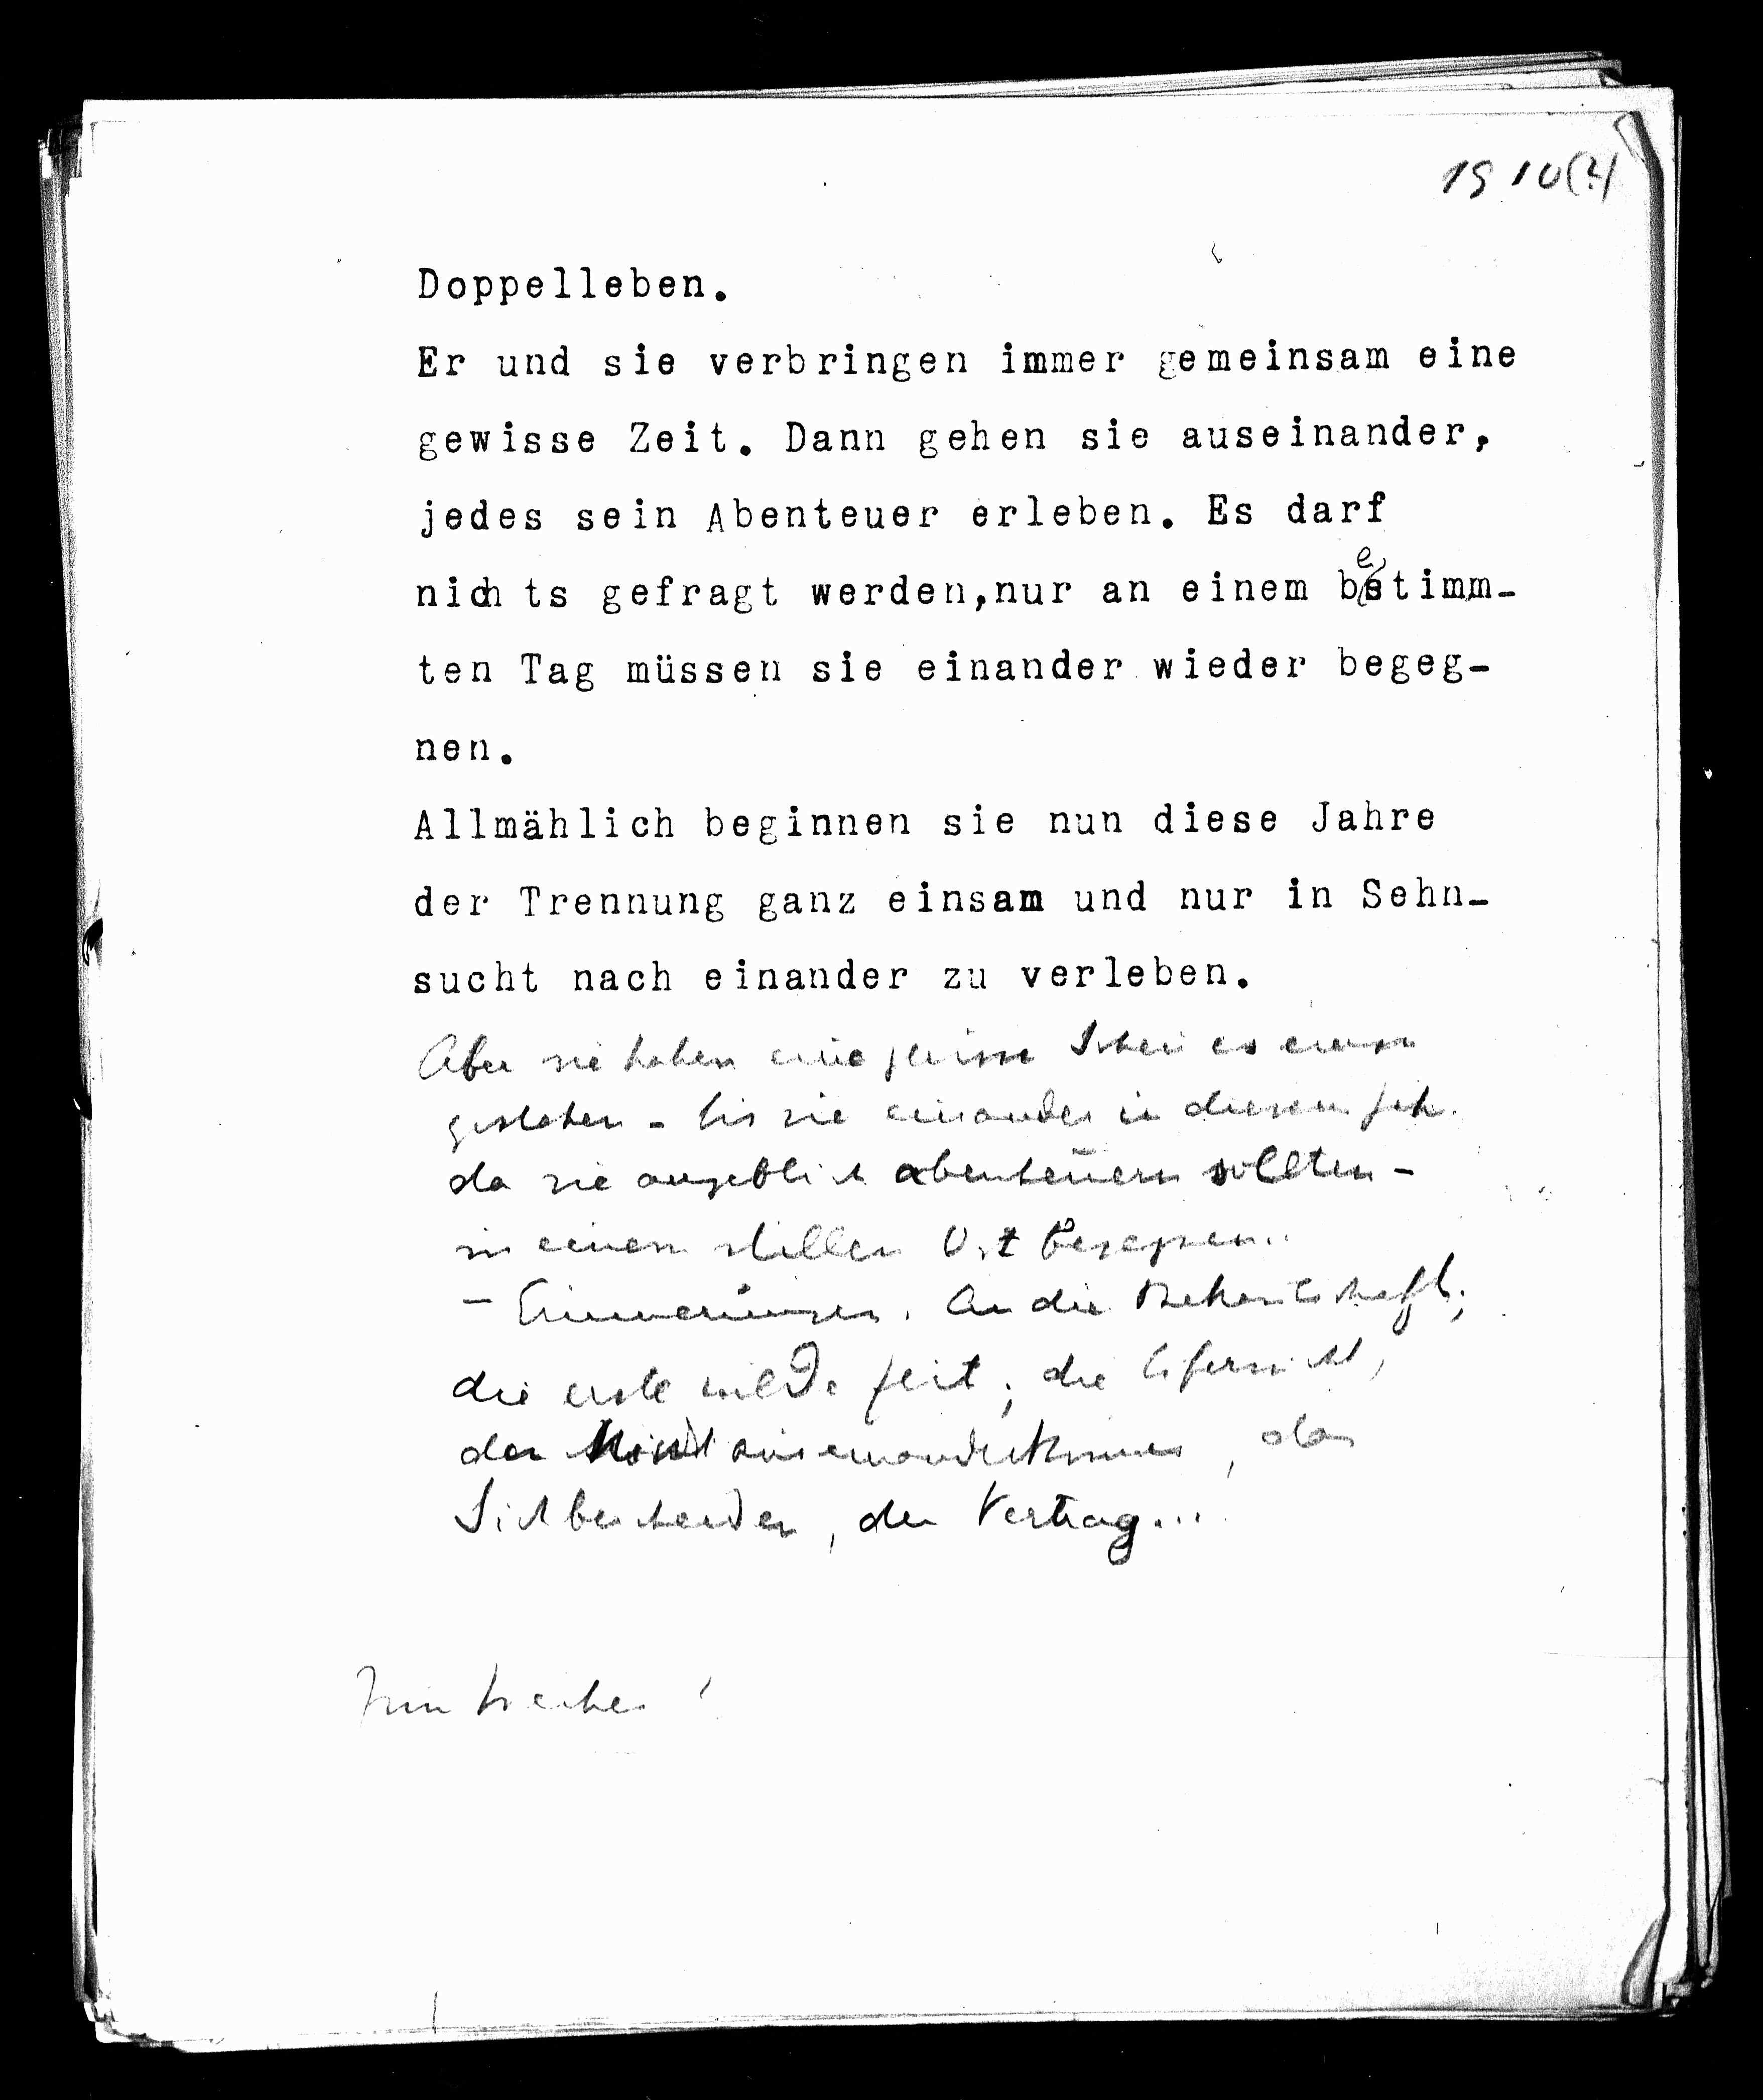 1910(?)
Doppelleben.
Er und sie verbringen immer gemeinsam eine
gewisse Zeit. Dann gehen sie auseinander,
jedes sein Abenteuer erleben. Es darf
nichts gefragt werden,nur an einem bestimm-
ten Tag müssen sie einander wieder begeg-
nen.
Allmählich beginnen sie nun diese Jahre
der Trennung ganz einsam und nur in Sehn-
sucht nach einander zu verleben.
Aber sie haben eine gewisse Scheu es einzu
gestehen - bis sie einander in diesem Jah.
da sie angeblich abenteuern sollten -
in einem stillen Ort begegnen..
- Erinnerungen. An die Bekantschaft;
die erste wilde Zeit; die Eifersucht,
das auseinanderkommen, das
Sichbescheiden, der Vertrag...